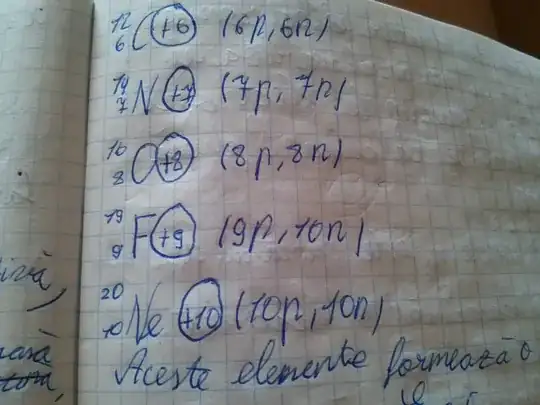 12
6 C +6 (6p, 6n)
14
7 N +7 (7p, 7n)
16
8 O +8 (8p, 8n)
19
9 F +9 (9p, 10n)
20
10 Ne +10 (10p, 10n)
Aceste elemente formează o